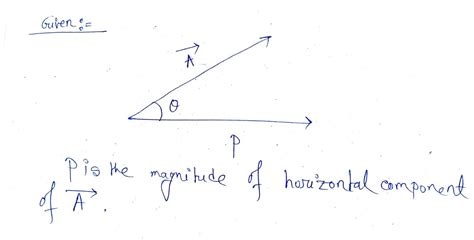 Given :=
A
θ
P
P is the magnitude of horizontal component
of A.